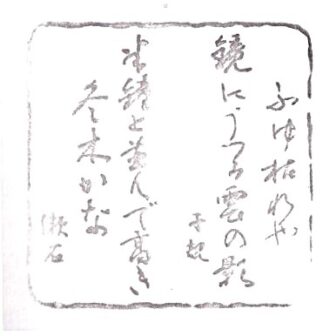 ふゆ枯れや
鏡にうつる雲の影
子規
半鐘と並んで高き
冬木かな
漱石